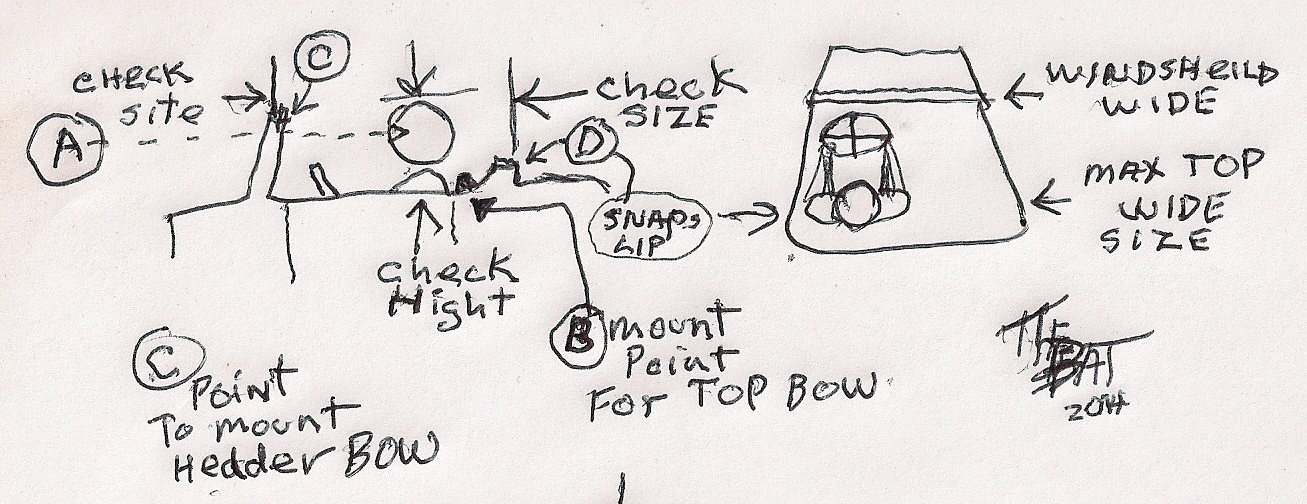 CHECK
site
A
C
check
SIZE
D
SNAPS
LIP
WINDSHEILD
WIDE
MAX TOP
WIDE
SIZE
check
Hight
B
mount
Point
For TOP BOW
C
Point
To mount
Hedder BOW
THE
BAT
2014